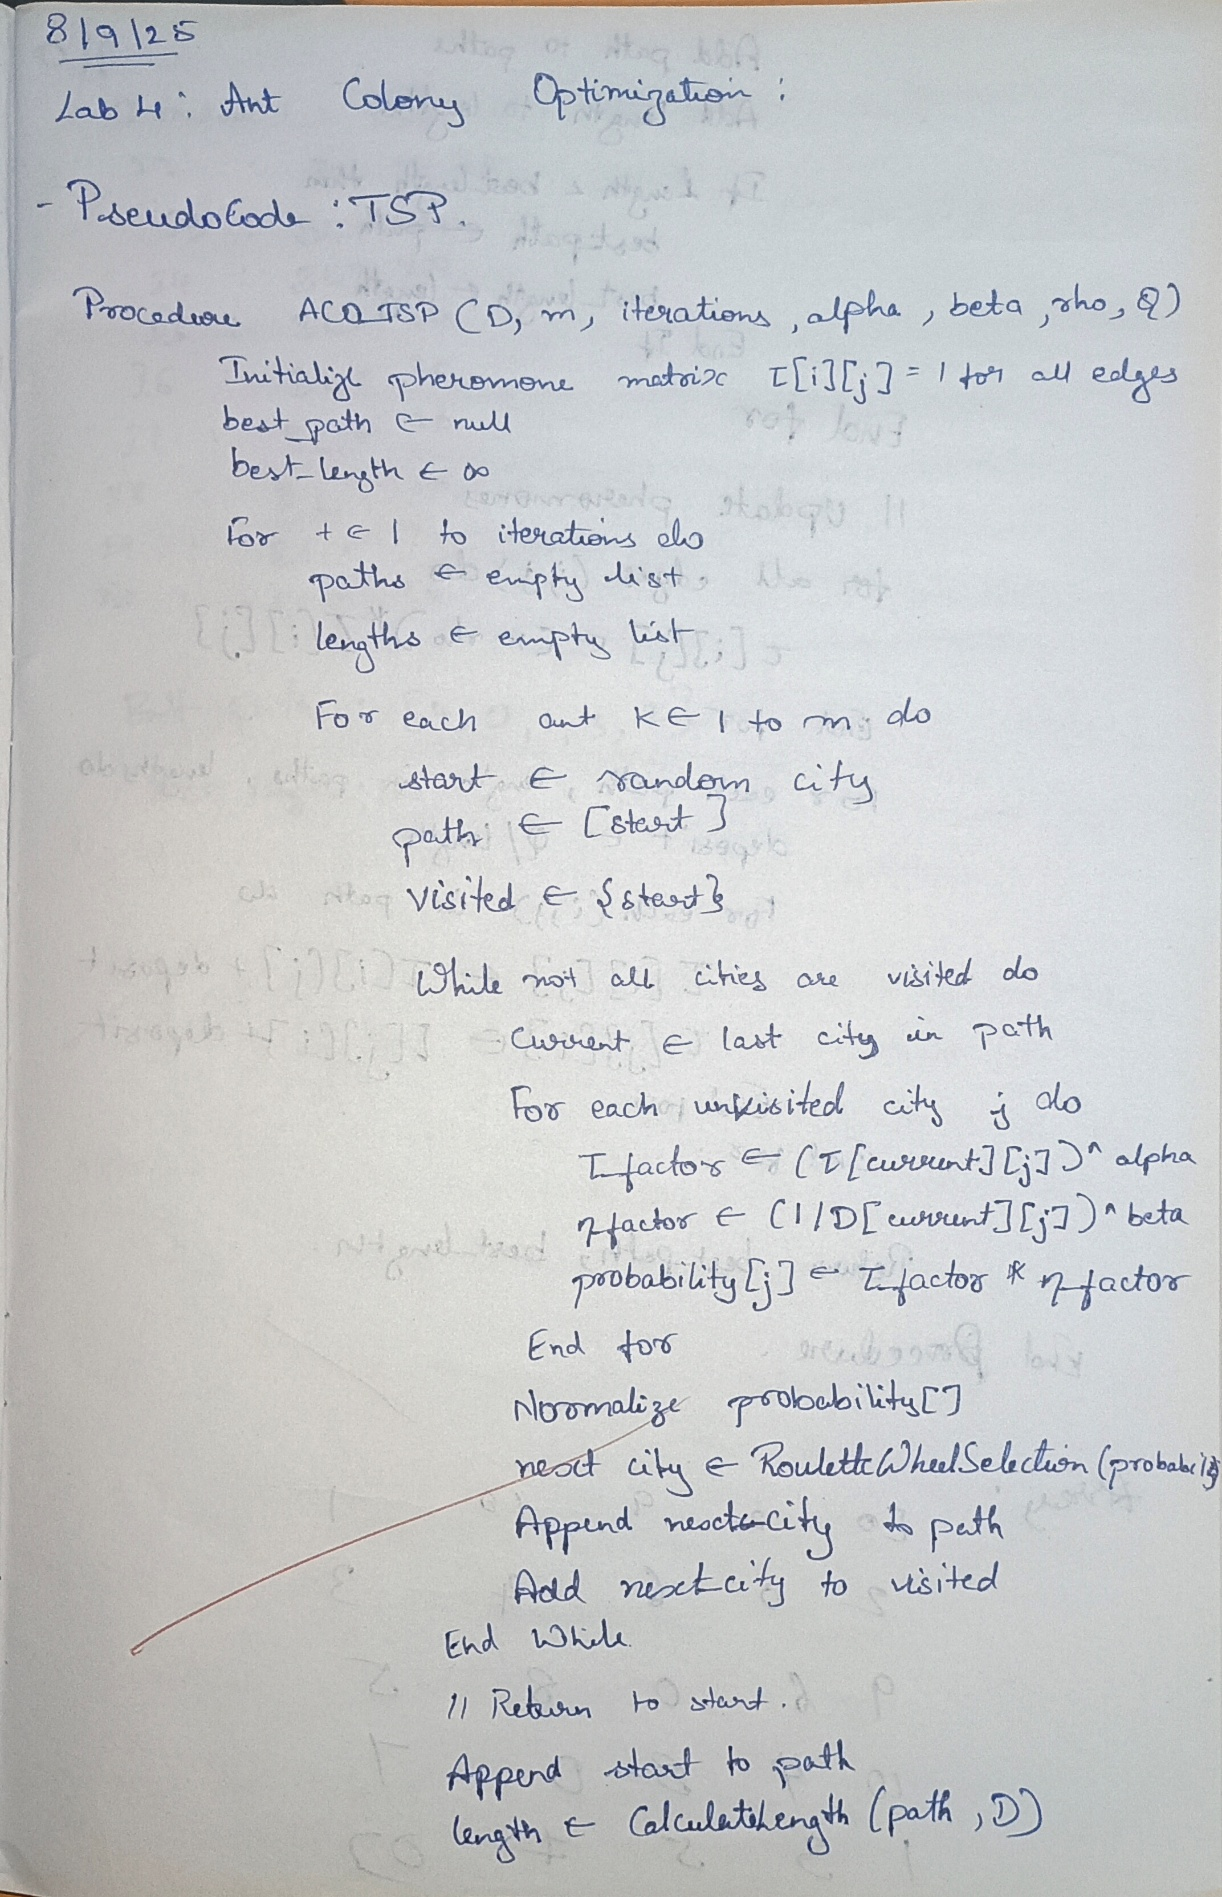 8/9/25
Lab 4: Ant Colony Optimization:
- PseudoCode: TSP.
Procedure ACO_TSP (D, m, iterations, alpha, beta, rho, Q)
Initialize pheromone matrix τ[i][j] = 1 for all edges
best_path ← null
best_length ← ∞
For t ← 1 to iterations do
paths ← empty list
lengths ← empty list
For each ant K ← 1 to m do
start ← random city
path ← [start]
visited ← {start}
While not all cities are visited do
Current ← last city in path
For each unvisited city j do
τ_factor ← (τ[current][j])^ alpha
η_factor ← (1/D[current][j])^ beta
probability[j] ← τ_factor * η_factor
End for
Normalize probability[]
next city ← RouletteWheelSelection (probability)
Append next-city to path
Add next-city to visited
End While
// Return to start.
Append start to path
length ← CalculateLength (path, D)